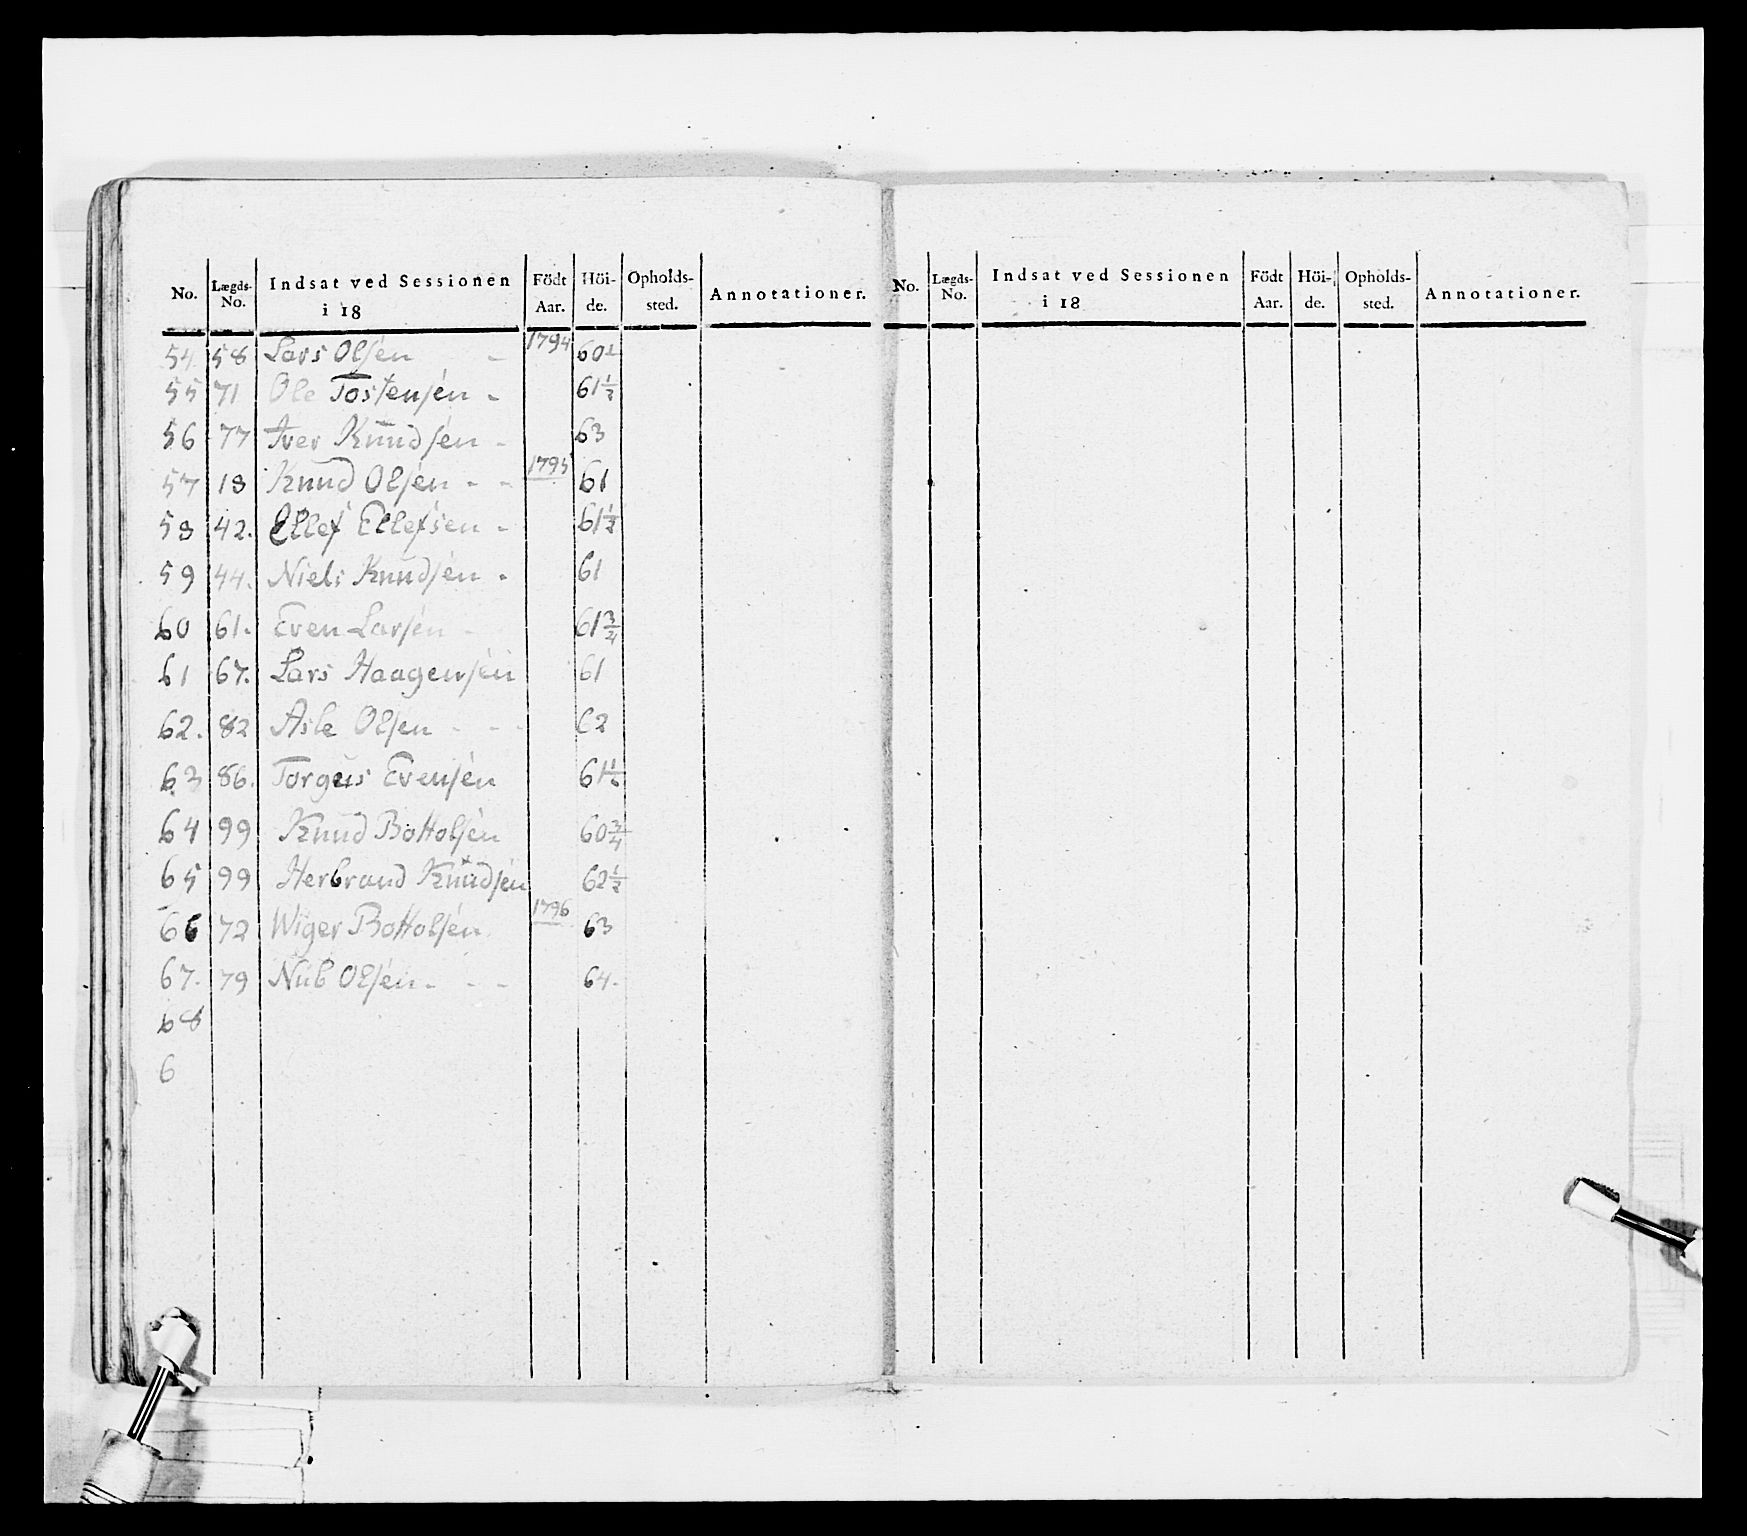 No. Lægds-No. Indsat ved Sessionen i 18 Födt Aar. Höi-de. Opholds-sted. Annotationer.
54 58 Lars Olsen - 1794 60½
55 71 Ole Tostensen - 61½
56 77 Iver Knudsen - 63
57 18 Knud Olsen - - 1795 61
58 42. Ellef Ellefsen - 61½
59 44. Niels Knudsen - 61
60 61. Even Larsen - 61¾
61 67. Lars Haagensen 61
62. 82 Asle Olsen - - 62
63 86. Torgus Evensen
64 99 Knud Bottolsen 60¾
65 99 Herbrand Knudsen 62½
66 72 Wiger Bottolsen 1796 63
67. 79 Nub Olsen - - - 64.
68
6
No. Lægds-No. Indsat ved Sessionen i 18 Födt Aar. Höi-de. Opholds-sted. Annotationer.